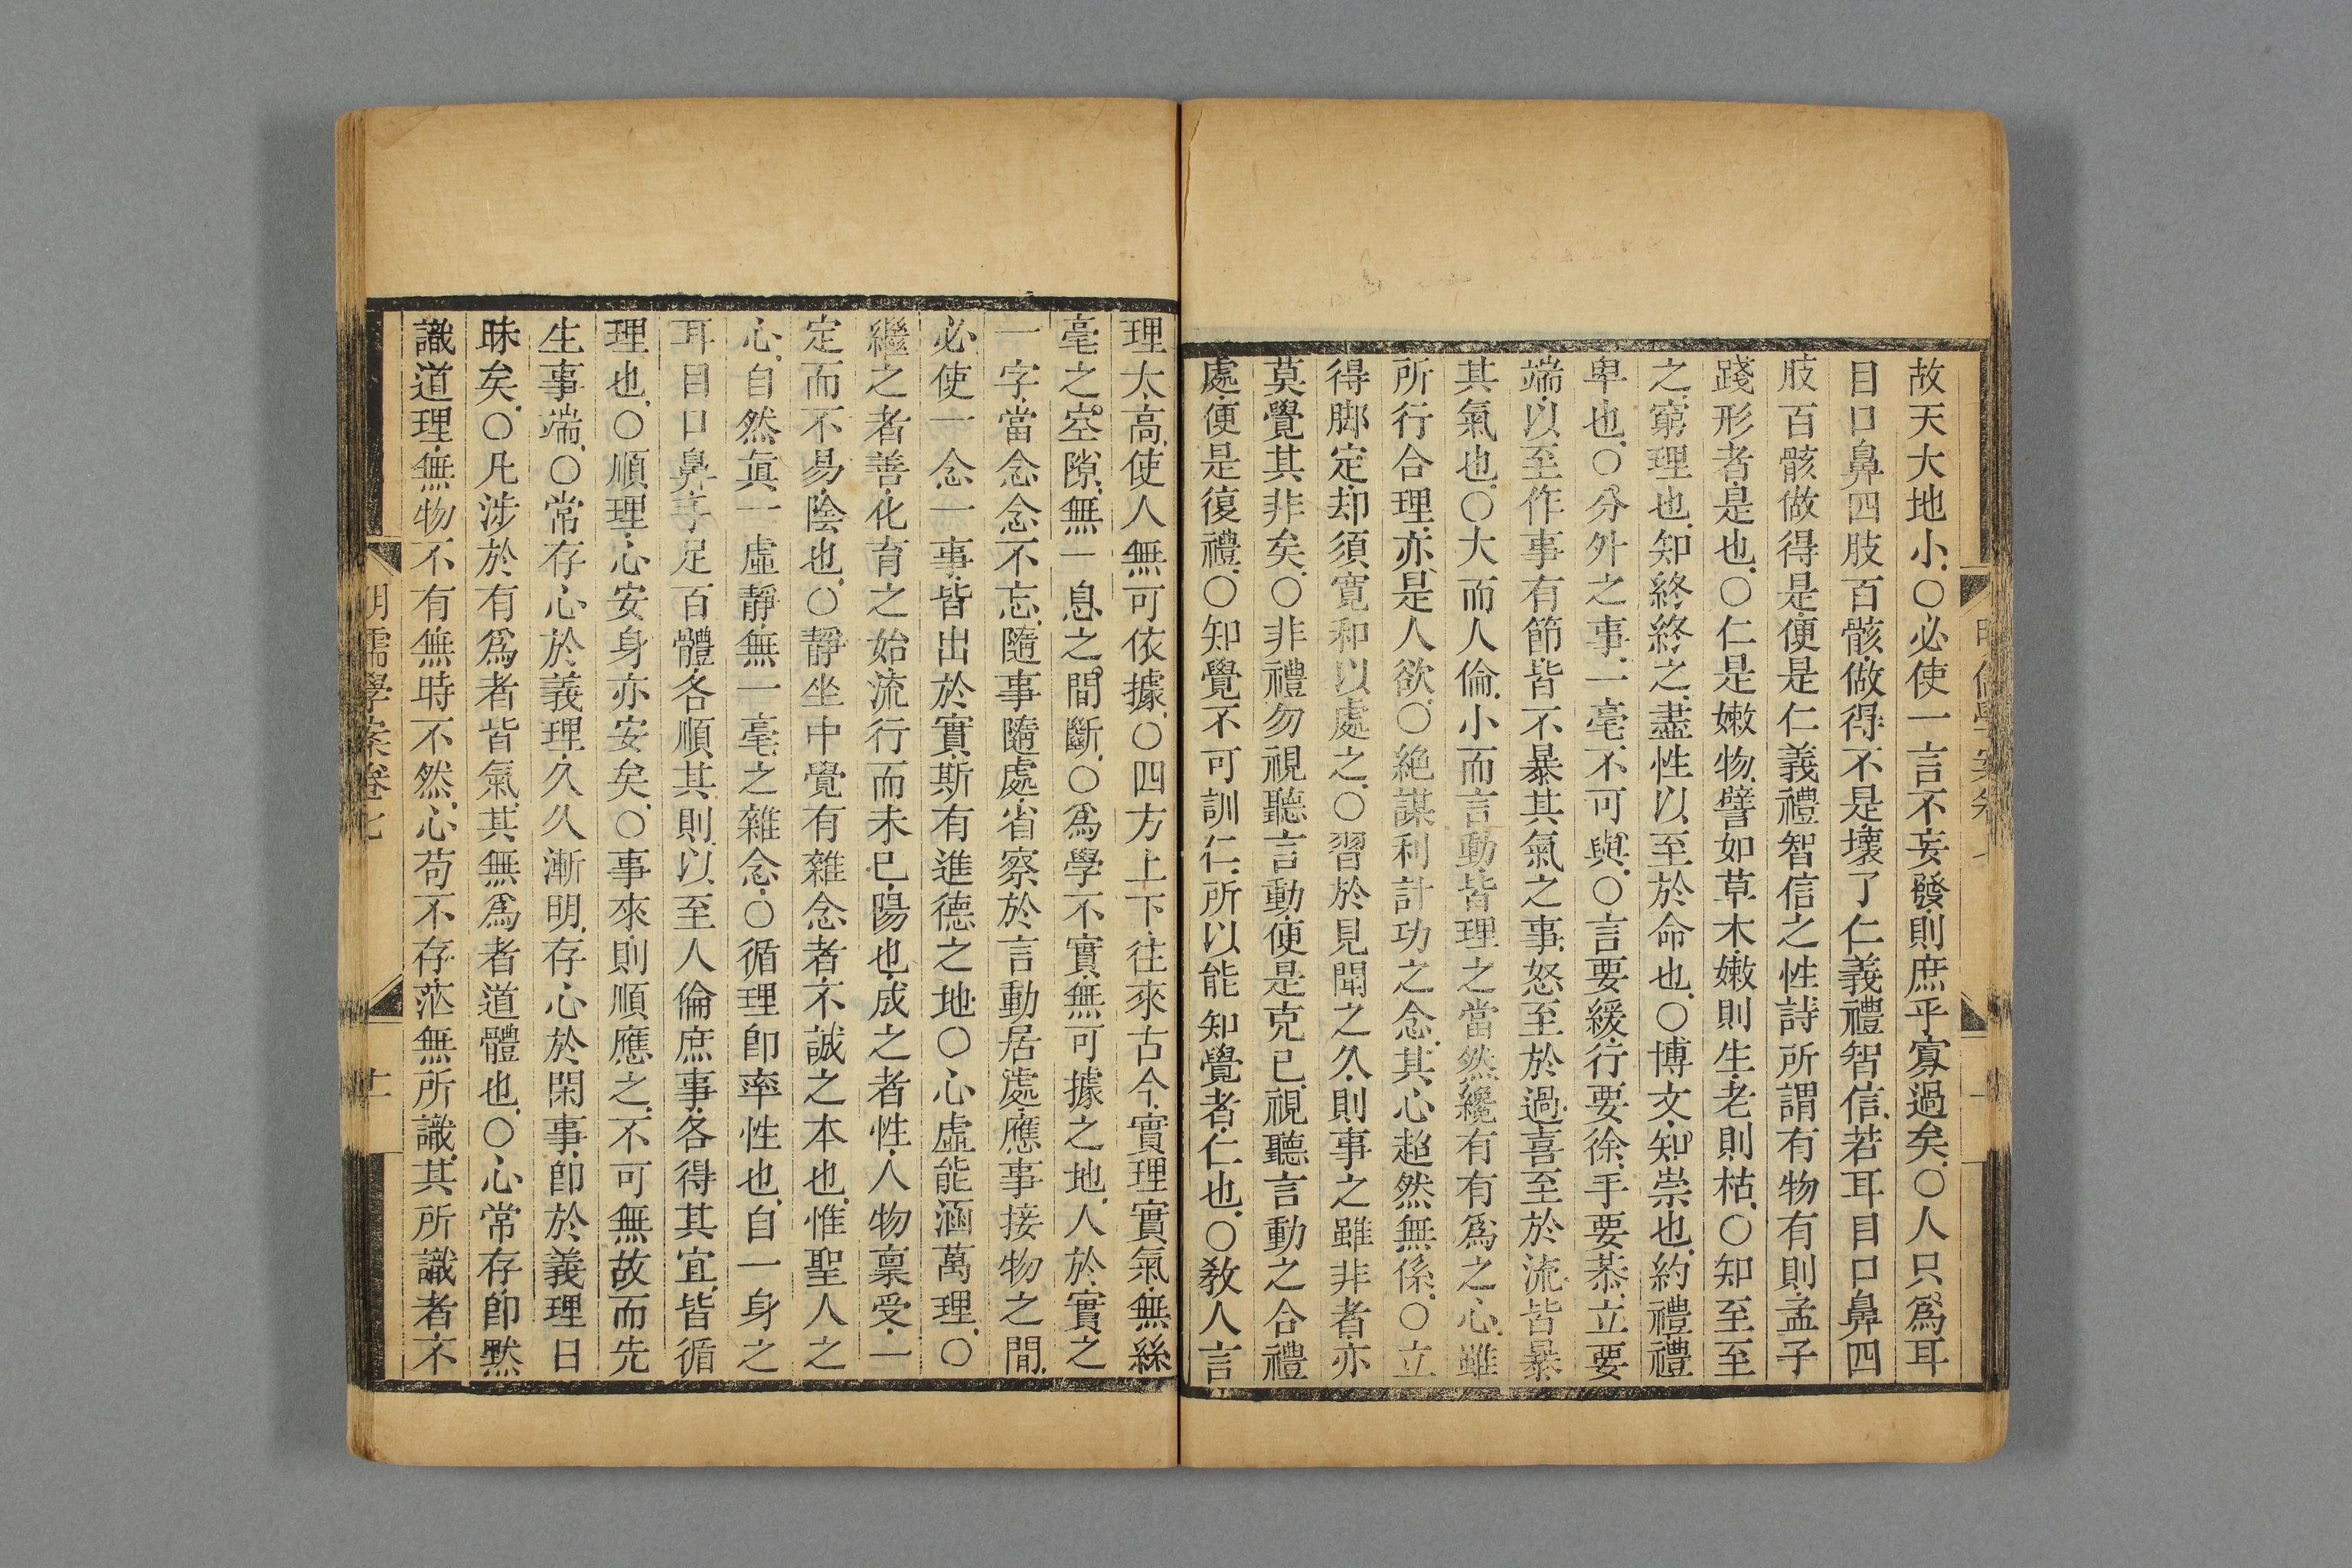 故天大地小○必使一言不妄發則庶乎寡過矣○人只爲耳
目口鼻四肢百骸做得不是壞了仁義禮智信若耳目口鼻四
肢百骸做得是便是仁義禮智信之性詩所謂有物有則孟子
踐形者是也○仁是嫩物譬如草木嫩則生老則枯○知至至
之窮理也知終終之盡性以至於命也○博文知崇也約禮禮
卑也○分外之事一毫不可與○言要緩行要徐手要恭立要
端以至作事有節皆不暴其氣之事怒至於過喜至於流皆暴
其氣也○大而人倫小而言動皆理之當然纔有有爲之心雖
所行合理亦是人欲○絶謀利計功之念其心超然無係○立
得脚定却須寬和以處之○習於見聞之久則事之雖非者亦
莫覺其非矣○非禮勿視聽言動便是克已視聽言動之合禮
處便是復禮○知覺不可訓仁所以能知覺者仁也○敎人言
理太高使人無可依據○四方上下往來古今實理實氣無絲
毫之空隙無一息之間斷○爲學不實無可據之地人於實之
一字當念念不忘隨事隨處省察於言動居處應事接物之間
必使一念一事皆出於實斯有進德之地○心虛能涵萬理○
繼之者善化育之始流行而未已陽也成之者性人物稟受一
定而不易陰也○靜坐中覺有雜念者不誠之本也惟聖人之
心自然眞一虛靜無一毫之雜念○循理卽率性也自一身之
耳目口鼻手足百體各順其則以至人倫庶事各得其宜皆循
理也○順理心安身亦安矣○事來則順應之不可無故而先
生事端○常存心於義理久久漸明存心於閑事卽於義理日
昧矣○凡涉於有爲者皆氣其無爲者道體也○心常存卽默
識道理無物不有無時不然心苟不存茫無所識其所識者不
明儒學案卷七
十一